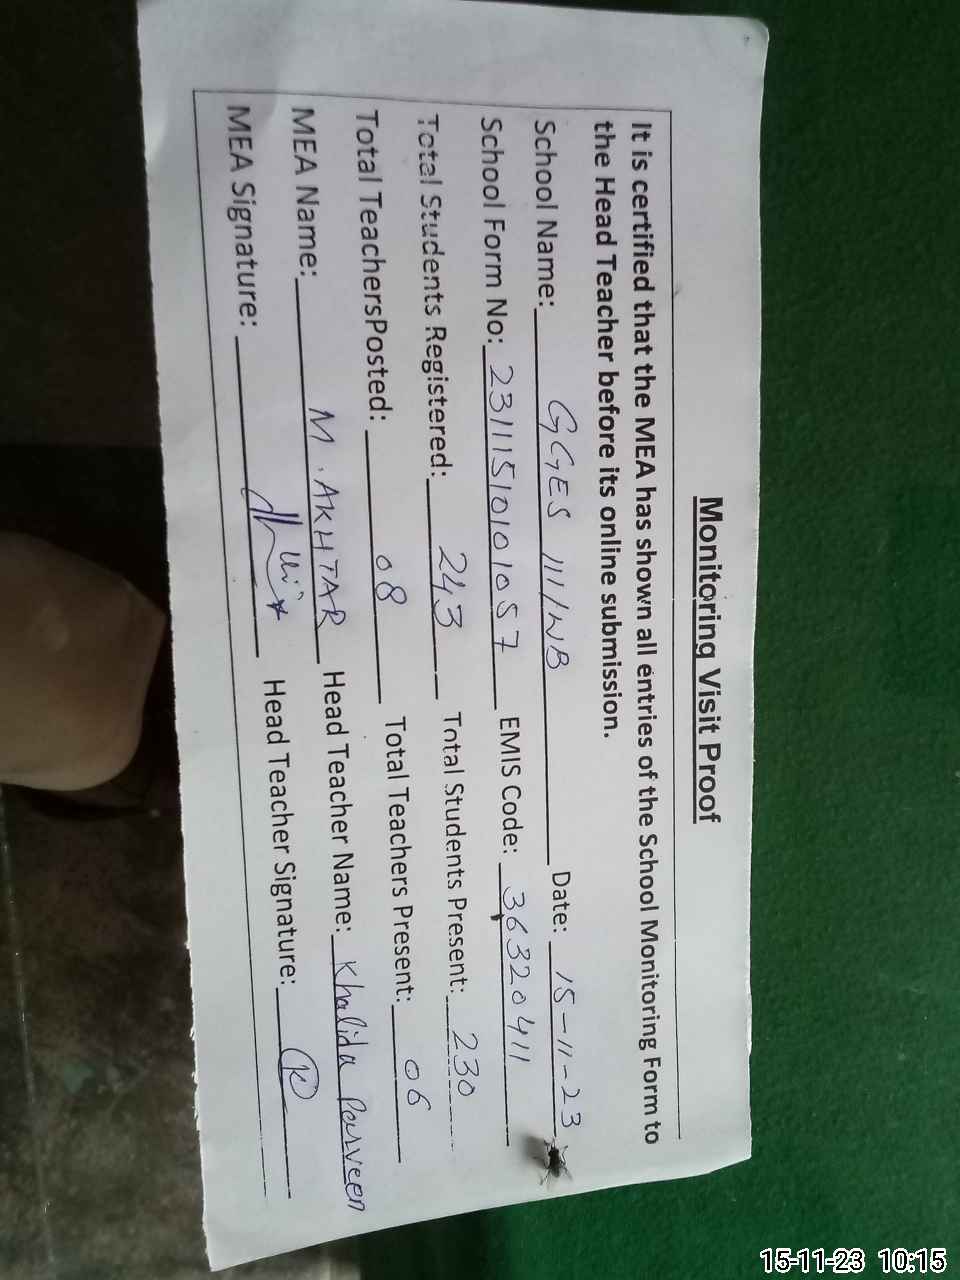 Monitoring Visit Proof
It is certified that the MEA has shown all entries of the School Monitoring Form to
the Head Teacher before its online submission.
School Name: GGES 111/WB Date: 15-11-23
School Form No: 23111510101057 EMIS Code: 36320411
Total Students Registered: 243 Total Students Present: 230
Total TeachersPosted: 08 Total Teachers Present: 06
MEA Name: M. AKHTAR Head Teacher Name: Khalida Parveen
MEA Signature: Head Teacher Signature:
15-11-23 10:15